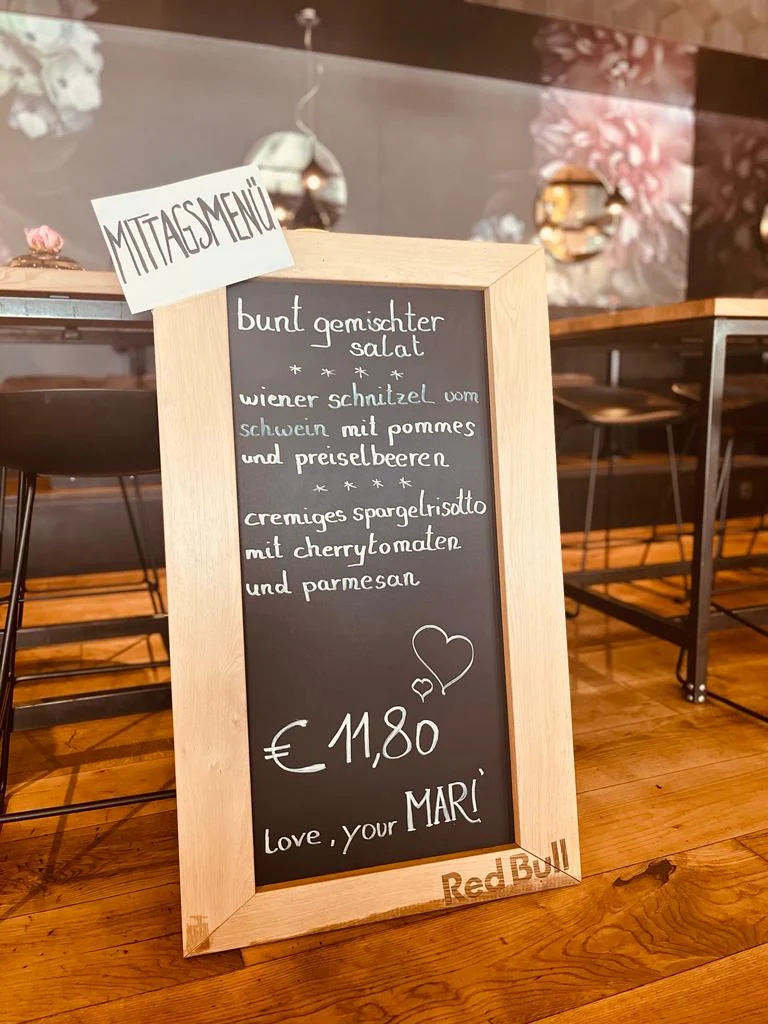 MITTAGSMENÜ
bunt gemischter
salat
* * * *
wiener schnitzel vom
schwein mit pommes
und preiselbeeren
* * * *
cremiges spargelrisotto
mit cherrytomaten
und parmesan
€ 11,80
love, your MARI
Red Bull